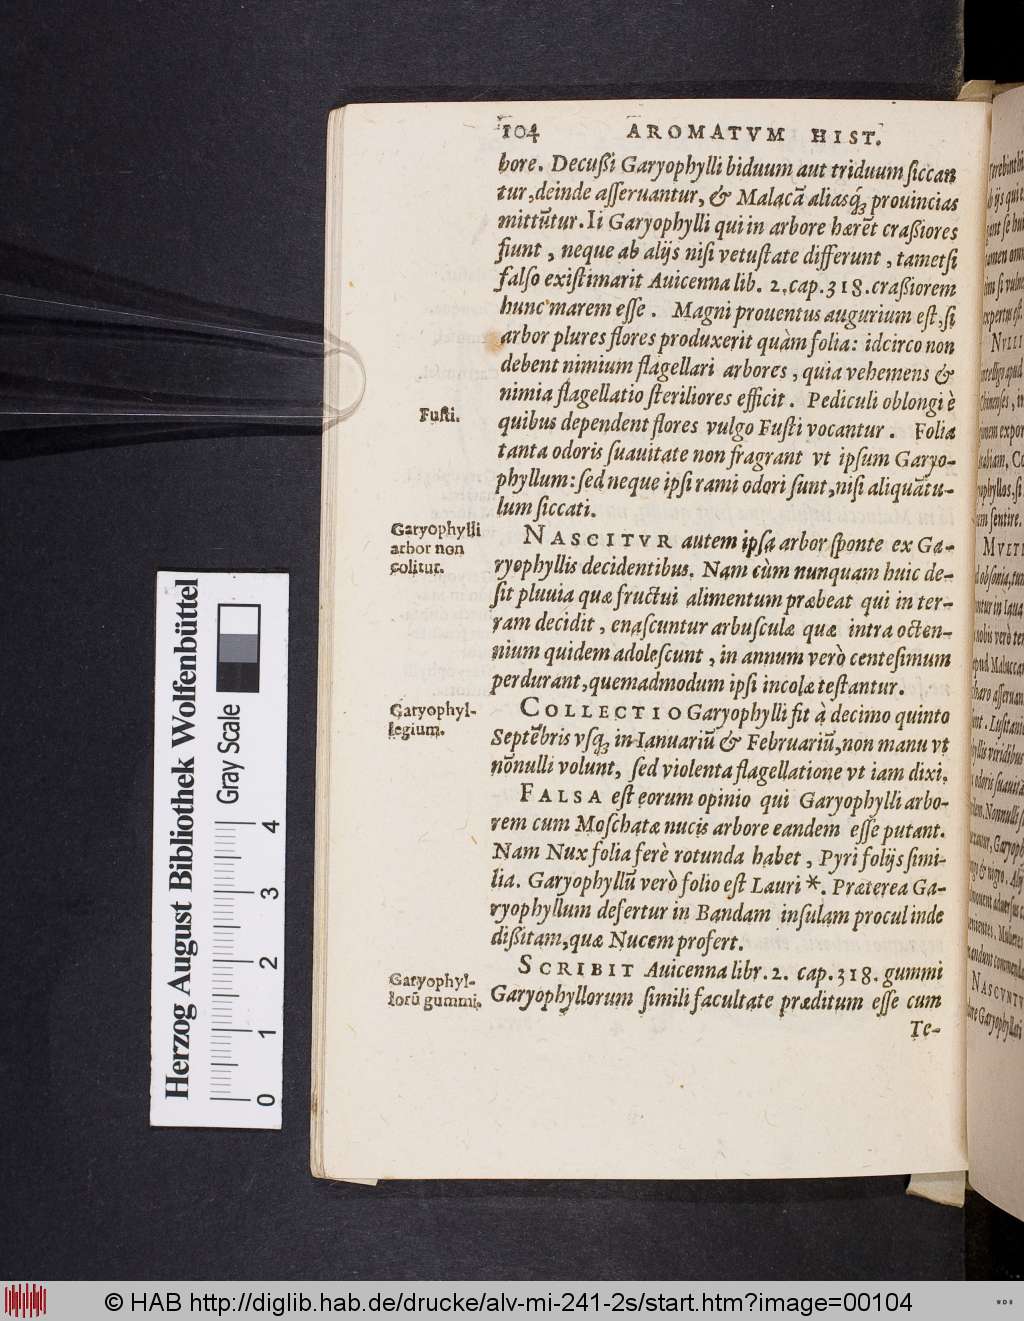 104 AROMATVM HIST.
bore. Decußi Garyophylli biduum aut triduum ſiccan
tur, deinde aſſeruantur, & Malacã aliasq́ꝫ prouincias
mittũtur. Ii Garyophylli qui in arbore hærẽt craßiores
fiunt, neque ab alijs niſi vetuſtate differunt, tametſi
falſo exiſtimarit Auicenna lib. 2. cap. 318. craßiorem
hunc marem eſſe. Magni prouentus augurium eſt, ſi
arbor plures flores produxerit quàm folia: idcirco non
debent nimium flagellari arbores, quia vehemens &
nimia flagellatio ſteriliores efficit. Pediculi oblongi è
Fuſti.
quibus dependent flores vulgo Fuſti vocantur. Folia
tanta odoris ſuauitate non fragrant vt ipſum Garyo-
phyllum: ſed neque ipſi rami odori ſunt, niſi aliquãtu-
lum ſiccati.
Garyophylli
arbor non
colitur.
NASCITVR autem ipſa arbor ſponte ex Ga-
ryophyllis decidentibus. Nam cùm nunquam huic de-
ſit pluuia quæ fructui alimentum præbeat qui in ter-
ram decidit, enaſcuntur arbuſculæ quæ intra octen-
nium quidem adoleſcunt, in annum verò centeſimum
perdurant, quemadmodum ipſi incolæ teſtantur.
Garyophyl-
legium.
COLLECTIO Garyophylli fit à decimo quinto
Septẽbris vſqꝫ in Ianuariũ & Februariũ, non manu vt
nõnulli volunt, ſed violenta flagellatione vt iam dixi.
FALSA eſt eorum opinio qui Garyophylli arbo-
rem cum Moſchatæ nucis arbore eandem eſſe putant.
Nam Nux folia ferè rotunda habet, Pyri folijs ſimi-
lia. Garyophyllũ verò folio eſt Lauri *. Præterea Ga-
ryophyllum defertur in Bandam inſulam procul inde
dißitam, quæ Nucem profert.
Garyophyl-
lorũ gummi.
SCRIBIT Auicenna libr. 2. cap. 318. gummi
Garyophyllorum ſimili facultate præditum eſſe cum
Te-
Herzog August Bibliothek Wolfenbüttel
Gray Scale
0 1 2 3 4
© HAB http://diglib.hab.de/drucke/alv-mi-241-2s/start.htm?image=00104